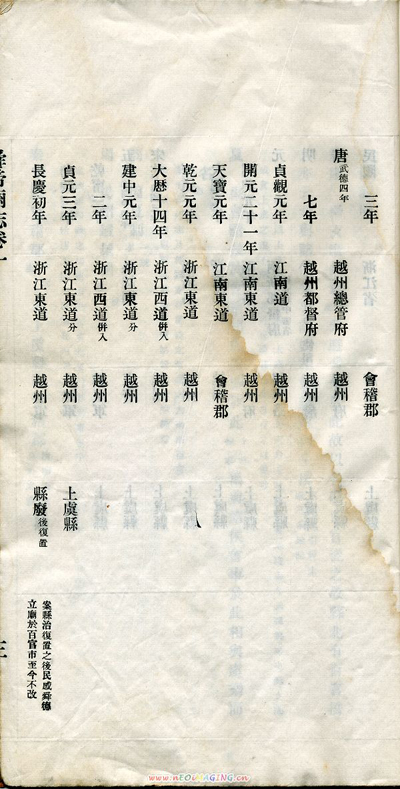 三年 會稽郡
唐武德四年 越州總管府 越州
七年 越州都督府 越州
貞觀元年 江南道 越州
開元二十一年 江南東道 越州
天寶元年 江南東道 會稽郡
乾元元年 浙江東道 越州
大曆十四年 浙江西道併入 越州
建中元年 浙江東道分 越州
二年 浙江西道併入 越州
貞元三年 浙江東道分 越州 上虞縣
長慶初年 浙江東道 越州 縣廢後復置
案縣治復置之後民感舜德
立廟於百官市至今不改
www.nEOIMAGING.cn